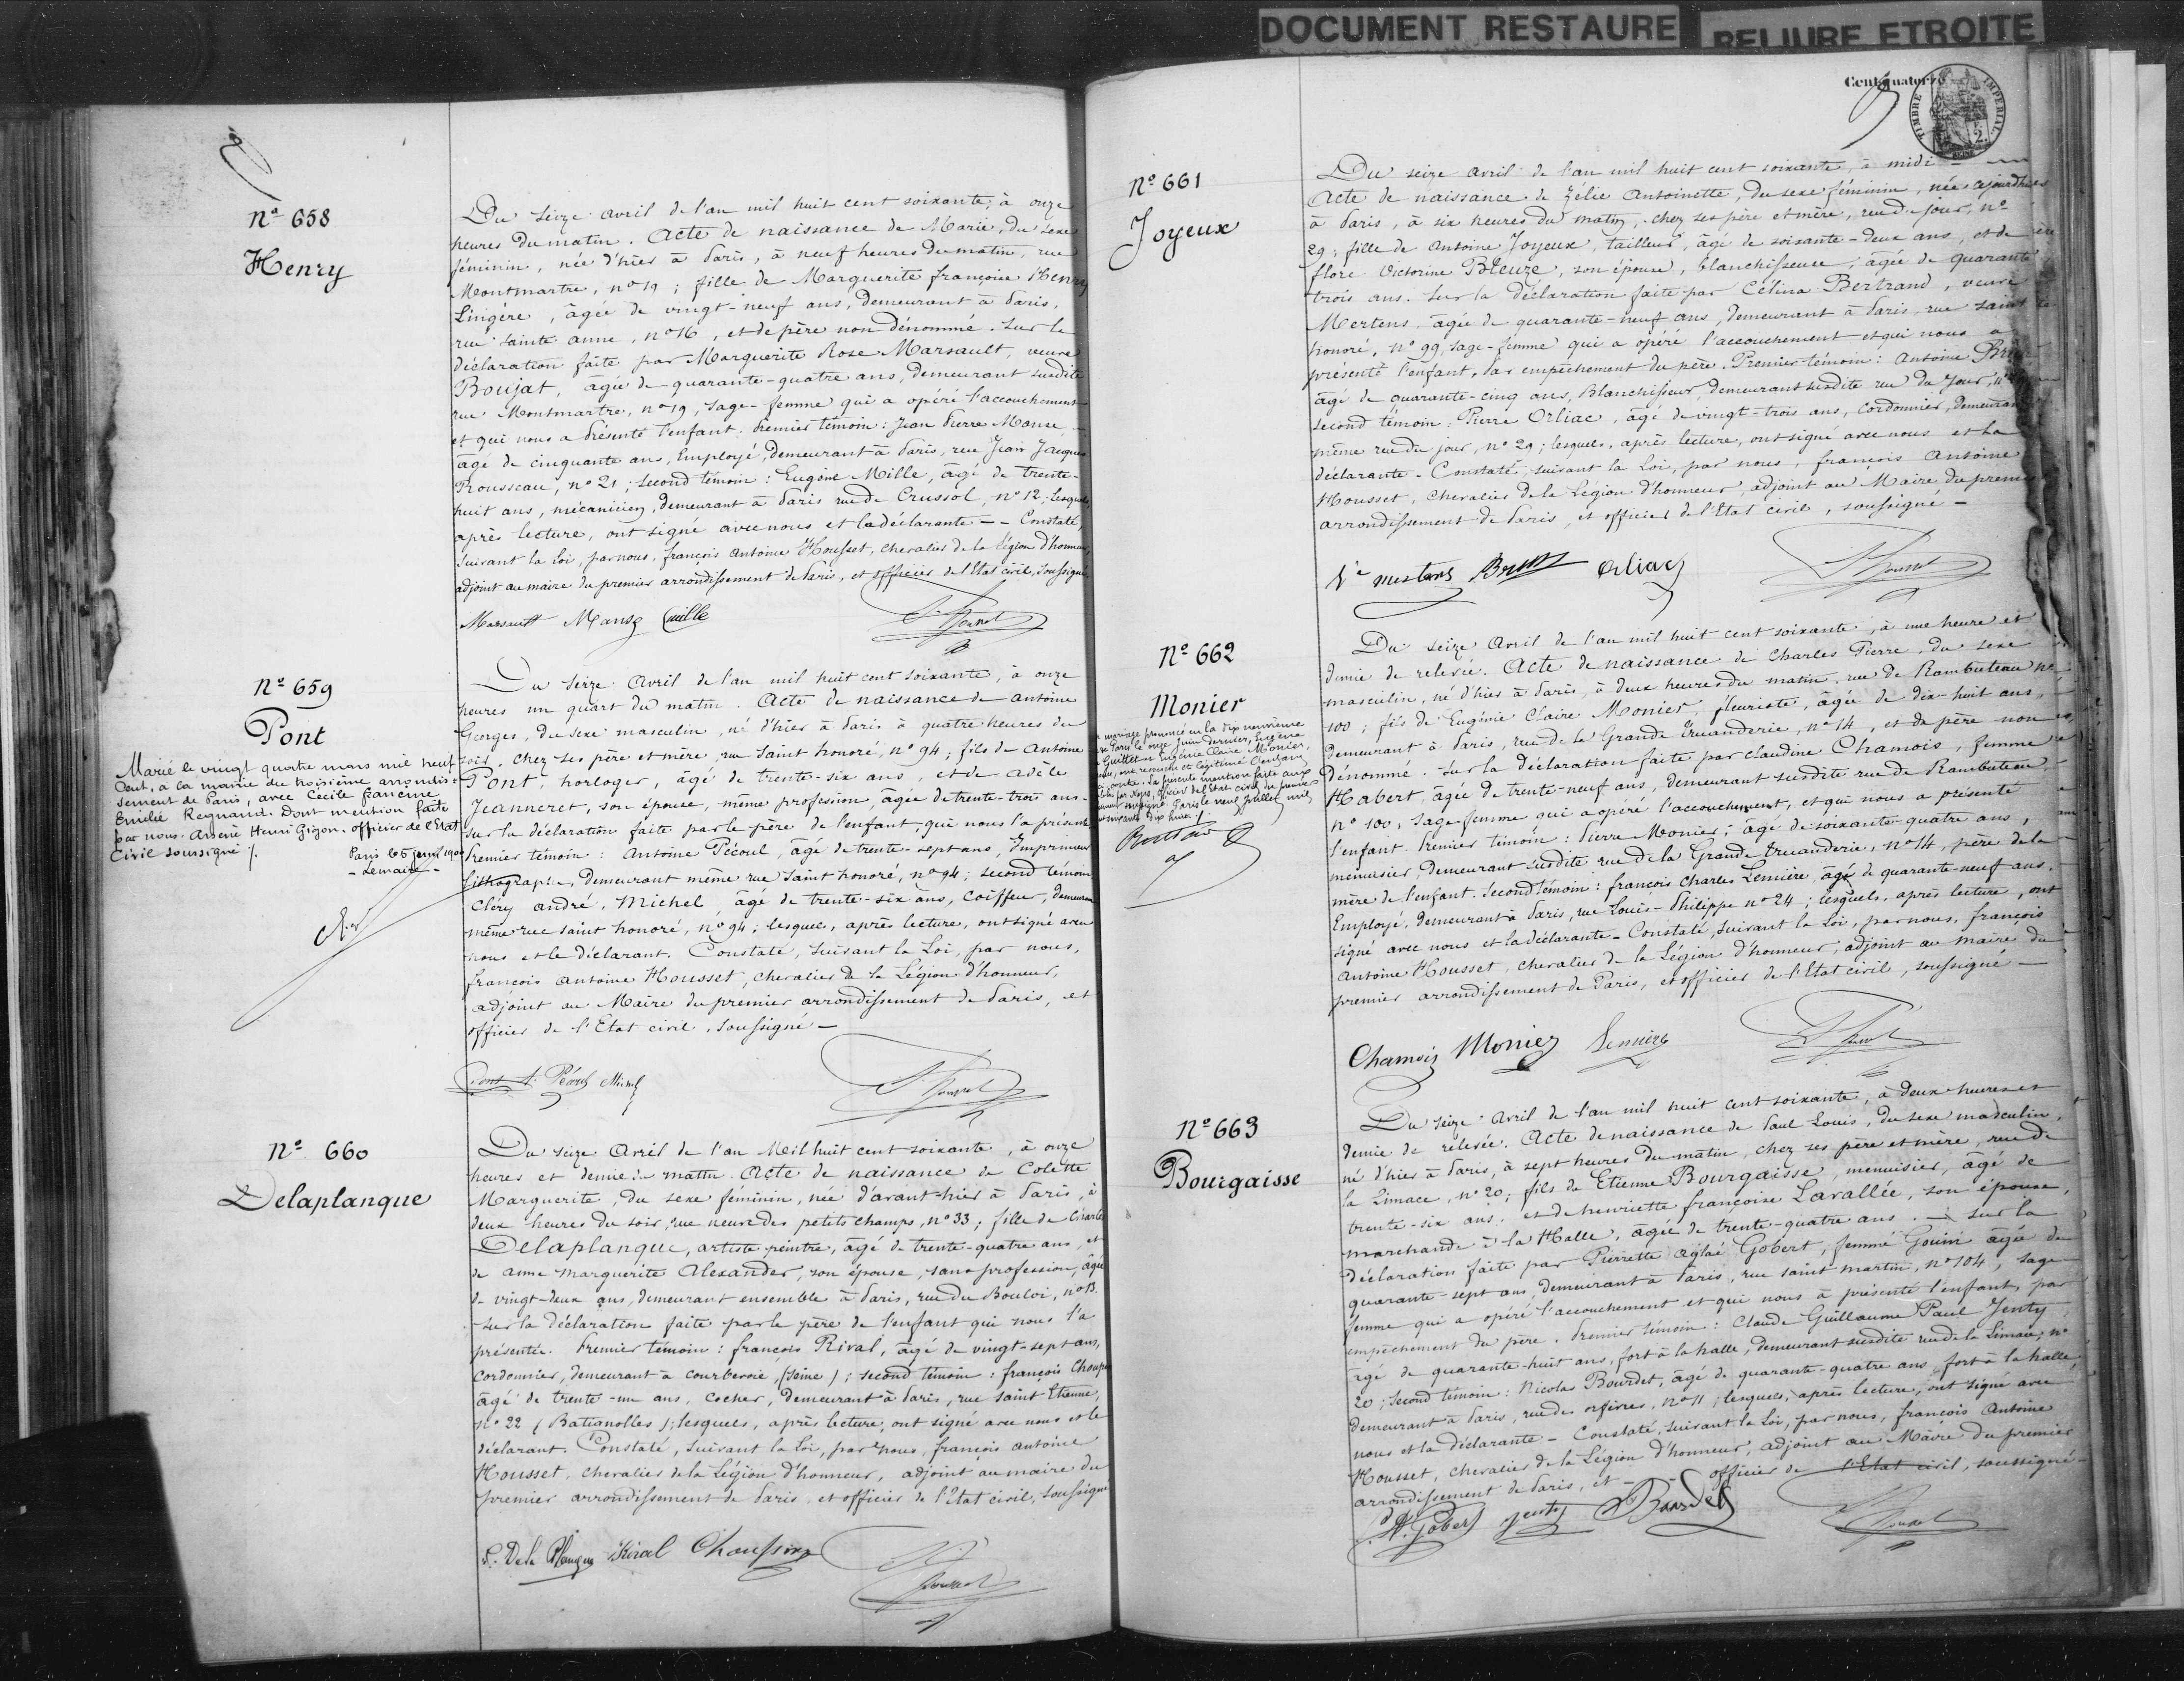 DOCUMENT RESTAURE
RELIURE ETROITE
Nº 658
Henry
Du Seize avril de l'an mil huit cent soixante, à onze
heures du matin. Acte de naissance de Marie, du sexe
féminin, née d'hier à Paris, à neuf heures du matin, rue
Montmartre, nº 19 ; fille de Marguerite françoise Henry
Lingère, âgée de vingt-neuf ans, demeurant à Paris,
rue Sainte anne, nº 16, et de père non dénommé. Sur la
déclaration faite par Marguerite Rose Marsault, veuve
Boujat, âgée de quarante-quatre ans, demeurant susdite
rue Montmartre, nº 19, Sage-femme qui a opéré l'accouchement
et qui nous a présenté l'enfant. Premier témoin : Jean Pierre Manse
âgé de cinquante ans, Employé, demeurant à Paris, rue Jean Jacques
Rousseau, nº 21 ; Second témoin : Eugène Mille, âgé de trente-
huit ans, mécanicien, demeurant à Paris rue de Crussol, nº 12 ; Lesquels
après lecture, ont signé avec nous et la déclarante - - Constaté,
Suivant la Loi, par nous, françois Antoine Housset, chevalier de la légion d'honneur,
adjoint au maire du premier arrondissement de Paris, et officier de l'Etat civil, Soussigné
Marsault Manse Mille
Nº 659
Pont
Marié le vingt quatre mars mil neuf
cent, à la mairie du troisième arrondis-
sement de Paris, avec Cécile francine
Emilie Regnard. Dont mention faite
par nous. Arsène Henri Gigon. officier de l'Etat
Civil soussigné /.
Paris le 5 1900
- Lemaire -
Du Seize Avril de l'an mil huit cent soixante, à onze
heures un quart du matin. Acte de naissance de Antoine
Georges, du sexe masculin, né d'hier à Paris à quatre heures du
soir, chez ses père et mère, rue Saint honoré, nº 94 ; fils de Antoine
Pont, horloger, âgé de trente-six ans, et de adèle
Jeanneret, son épouse, même profession, âgée de trente-trois ans-
sur la déclaration faite par le père de l'enfant, qui nous l'a présenté
Premier témoin : Antoine Pécoul, âgé de trente-sept ans, Imprimeur
lithographe, demeurant même rue Saint honoré, nº 94 ; second témoin
Cléry andré, Michel âgé de trente-six ans, Coiffeur, demeurant
même rue saint honoré, nº 94 ; lesquels, après lecture, ont signé avec
nous et le déclarant. Constaté, Suivant la Loi, par nous,
françois Antoine Housset, chevalier de la Légion d'honneur,
adjoint au Maire du premier arrondissement de Paris, et
officier de l'Etat civil, Soussigné -
Pont A. Pécoul Michel
Nº 660
Delaplanque
Du Seize Avril de l'an Mil huit cent soixante, à onze
heures et demie du matin. Acte de naissance de Colette
Marguerite, du sexe féminin, née d'avant-hier à Paris, à
deux heures du soir, rue neuve des petits champs, nº 33 ; fille de Charles
Delaplanque, artiste peintre, âgé de trente-quatre ans, et
de anne Marguerite Alexander, son épouse, sans profession, âgée
de vingt-deux ans, demeurant ensemble à Paris, rue du Bouloi, nº 13.
Sur la déclaration faite par le père de l'enfant qui nous l'a
présentée. Premier témoin : françois Rival, âgé de vingt-sept ans,
cordonnier, demeurant à courbevoie, (Seine) ; second témoin : françois
âgé de trente-un ans, cocher, demeurant à Paris, rue Saint Etienne,
nº 22 (Batignolles) ; lesquels, après lecture, ont signé avec nous et le
déclarant. Constaté, Suivant la Loi, par nous, françois antoine
Housset, chevalier de la Légion d'honneur, adjoint au maire du
premier arrondissement de Paris, et officier de l'Etat civil, Soussigné
Rival
Cent quatorze
TIMBRE IMPERIAL
Nº 661
Joyeux
Du seize avril de l'an mil huit cent soixante, à midi -
Acte de naissance de Zélie Antoinette, du sexe féminin, née aujourd'hui
à Paris, à six heures du matin, chez ses père et mère, rue du jour, nº
29 ; fille de Antoine Joyeux, tailleur, âgé de soixante-deux ans, et de
flore Victorine Bleuze, son épouse, blanchisseuse, âgée de quarante
trois ans. Sur la déclaration faite par Célina Bertrand, veuve
Mertens, âgée de quarante-neuf ans, demeurant à Paris, rue saint
honoré, nº 99, sage-femme qui a opéré l'accouchement et qui nous a
présenté l'enfant, par empêchement du père. Premier témoin : Antoine
âgé de quarante-cinq ans, Blanchisseur, demeurant susdite rue du Jour, nº
second témoin : Pierre Orliac, âgé de vingt-trois ans, Cordonnier, demeurant
même rue du jour, nº 29 ; lesquels, après lecture, ont signé avec nous et la
déclarante - Constaté, suivant la Loi, par nous, françois Antoine
Housset, Chevalier de la Légion d'honneur, adjoint au Maire du premier
arrondissement de Paris, et officier de l'Etat civil, soussigné -
Ve mertens Orliac
Nº 662
Monier
mariage prononcé en la dix neuvième
Paris le onze Juin dernier, Eugène
Guittet et Eugénie Claire Monier,
reconnu et légitimé
La présente mention faite aux
par Nous, officier de l'Etat civil du premier
Paris le neuf Juillet mil
soixante dix huit /.
Du seize Avril de l'an mil huit cent soixante, à une heure et
demie de relevée. Acte de naissance de Charles Pierre, du sexe
masculin, né d'hier à Paris, à deux heures du matin, rue de Rambuteau nº
100 ; fils de Eugénie Claire Monier, fleuriste, âgée de dix-huit ans,
demeurant à Paris, rue de la Grande Truanderie, nº 14, et de père non
dénommé. Sur la déclaration faite par Claudine Chamois, femme
Habert, âgée de trente-neuf ans, demeurant susdite rue de Rambuteau
nº 100, Sage-femme qui a opéré l'accouchement, et qui nous a présenté
l'enfant. Premier témoin : Pierre Monier, âgé de soixante-quatre ans,
menuisier, demeurant susdite rue de la Grande Truanderie, nº 14, père de la
mère de l'enfant. Second témoin : françois Charles Lemière, âgé de quarante-neuf ans,
Employé, demeurant à Paris, rue Louis-Philippe nº 24 ; lesquels, après lecture, ont
signé avec nous et la déclarante - Constaté, suivant la Loi, par nous, françois
Antoine Housset, chevalier de la Légion d'honneur, adjoint au maire du
premier arrondissement de Paris, et officier de l'Etat civil, soussigné -
Chamois Monier Lemière
Nº 663
Bourgaisse
Du seize Avril de l'an mil huit cent soixante, à deux heures et
demie de relevée. Acte de naissance de Paul Louis, du sexe masculin,
né d'hier à Paris, à sept heures du matin, chez ses père et mère, rue de
la Limace, nº 20 ; fils de Etienne Bourgaisse, menuisier, âgé de
trente-six ans, et de henriette françoise Lavallée, son épouse,
marchande à la Halle, âgée de trente-quatre ans. - Sur la
déclaration faite par Pierrette aglaé Gobert, femme Gouin âgée de
quarante-sept ans, demeurant à Paris, rue saint martin, nº 104, sage
femme qui a opéré l'accouchement et qui nous a présenté l'enfant, par
empêchement du père. Premier témoin : Claude Guillaume Paul Jenty
âgé de quarante-huit ans, fort à la halle, demeurant susdite rue de la Limace, nº
20 ; Second témoin : Nicolas Bourdet, âgé de quarante-quatre ans, fort à la halle,
demeurant à Paris, rue des orfèvres, nº 11 ; lesquels, après lecture, ont signé avec
nous et la déclarante - Constaté, suivant la Loi, par nous, françois Antoine
Housset, chevalier de la Légion d'honneur, adjoint au Maire du premier
arrondissement de Paris, et - officier de l'Etat civil, soussigné -
A. Gobert Jenty Bourdet